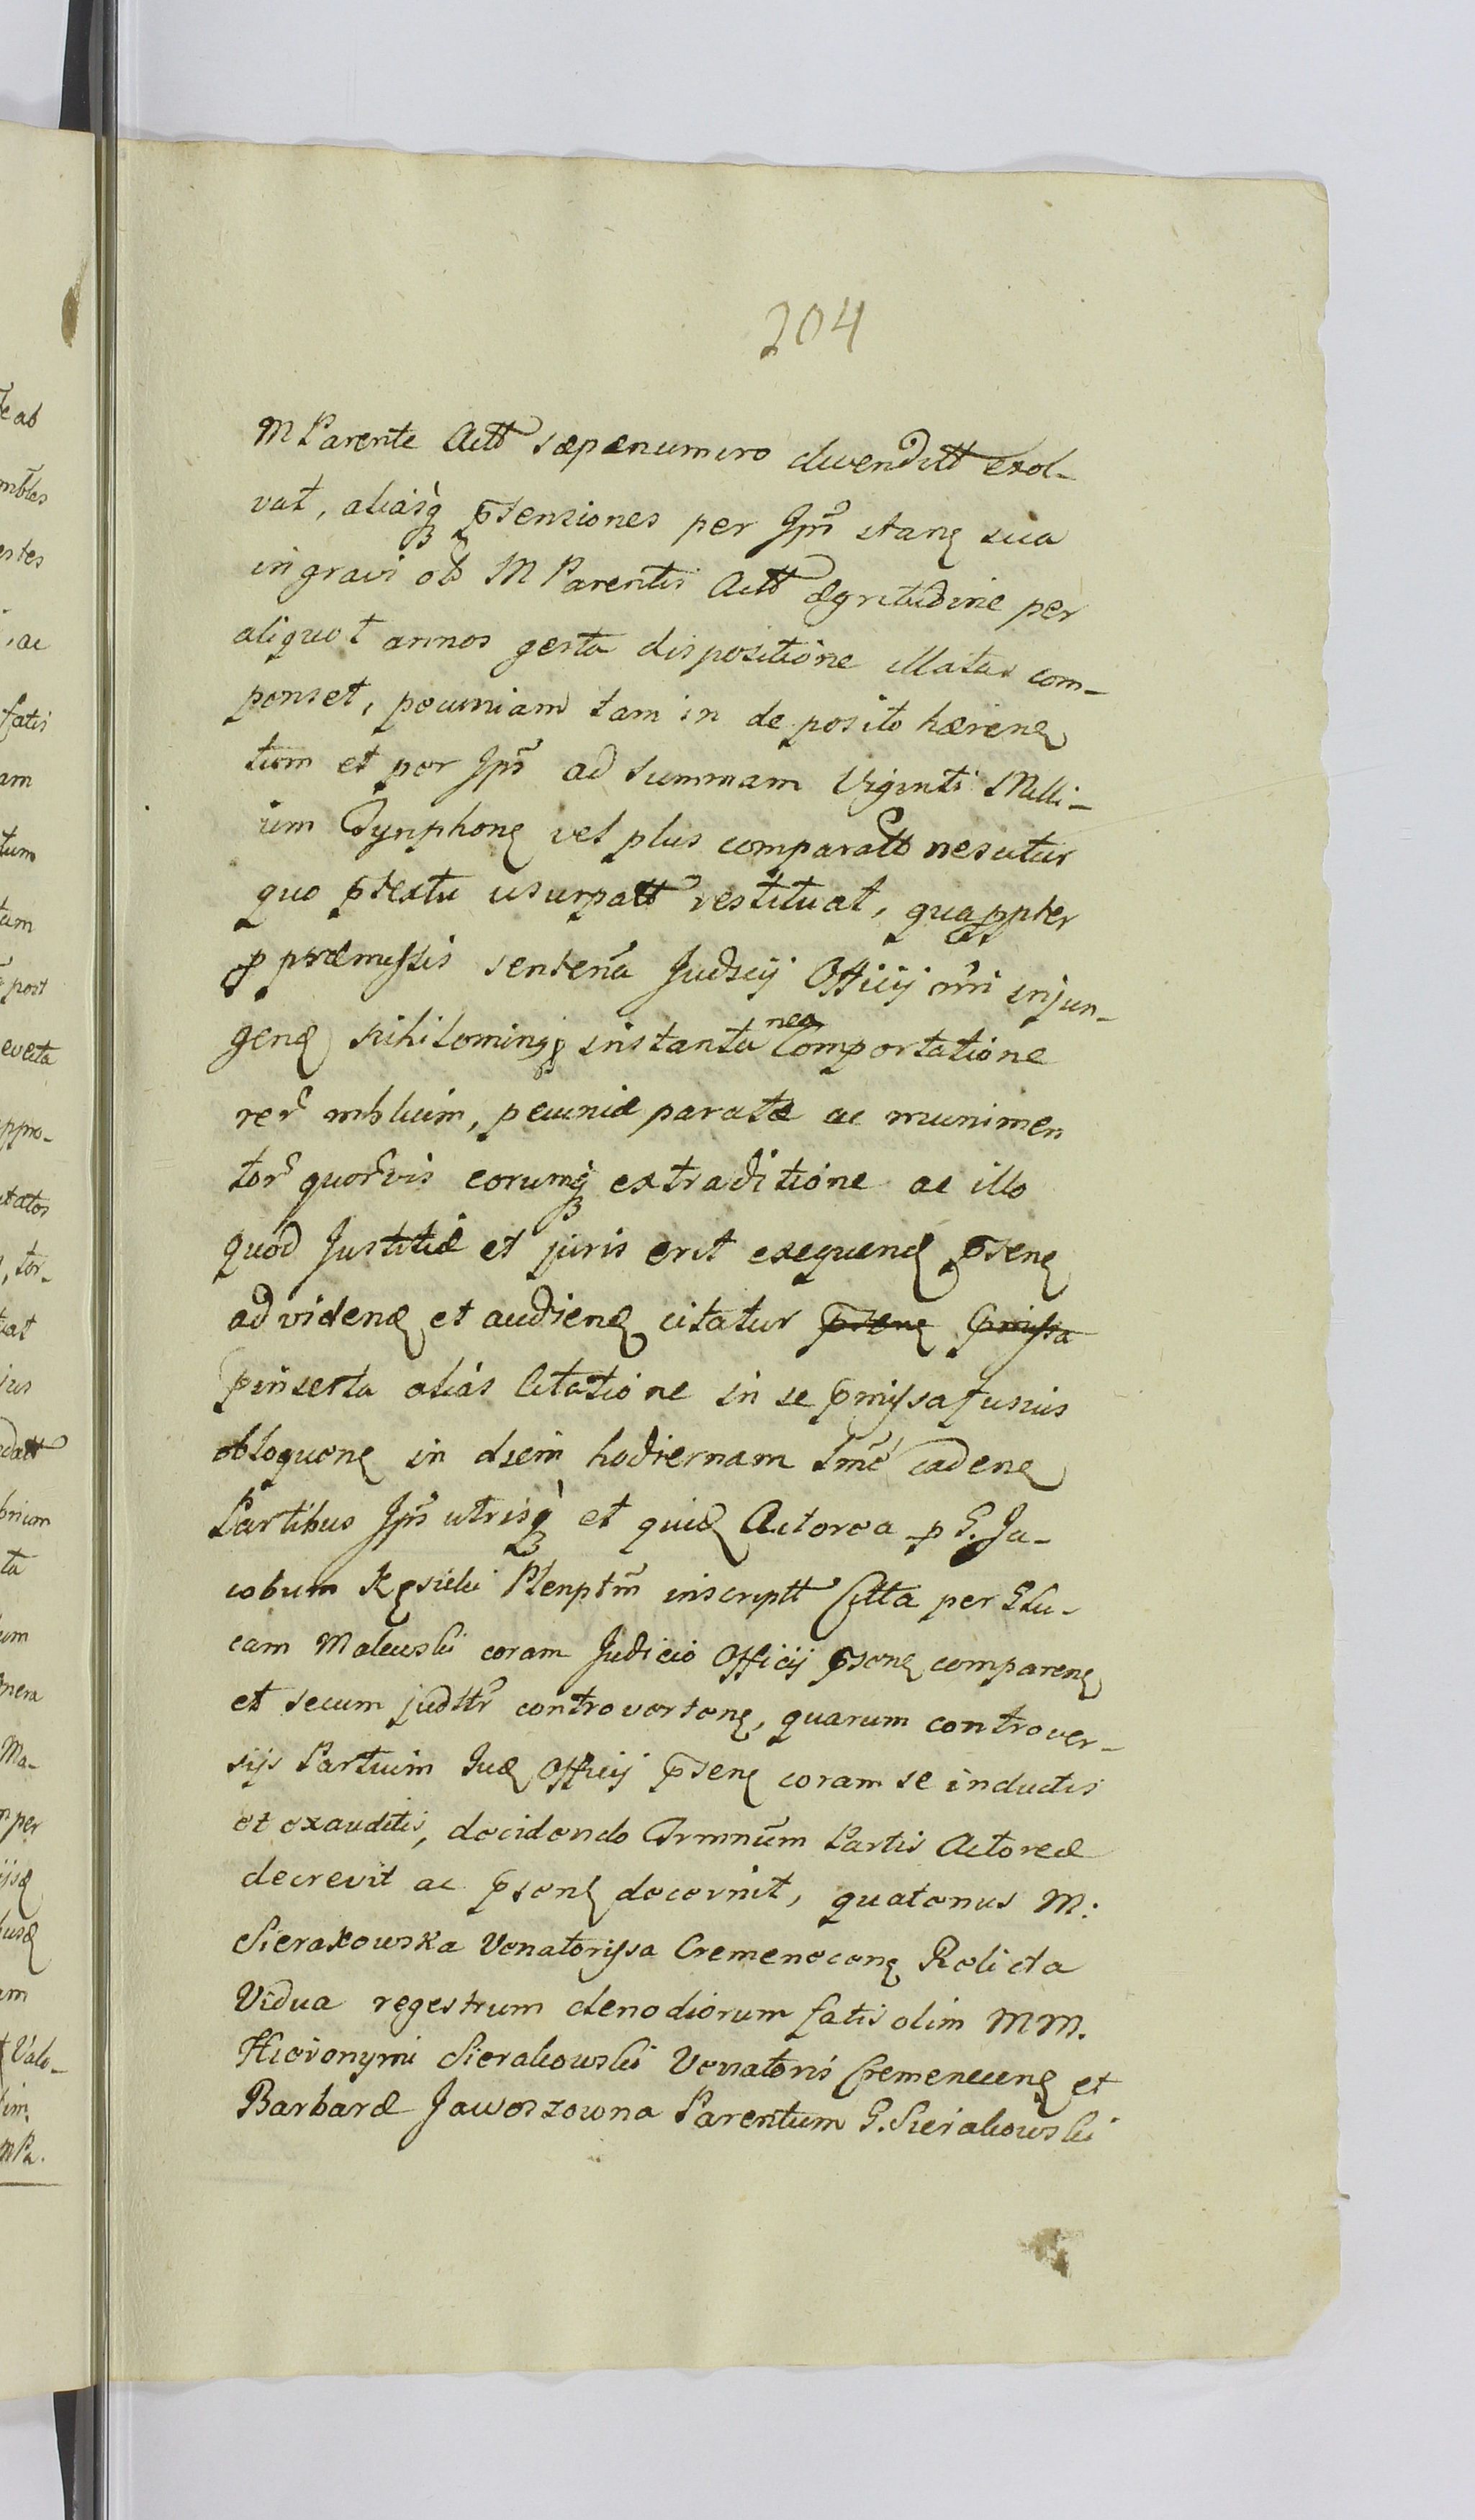 204
M Parente Actt sæpænumero divenditt exol-
vat, aliasq̀ꝫ p̄tensiones per Jpm̃ stanȩ sua
in gravi olb M Parentis Actt ægritudine per
aliquot annos gesta dispositione illatas com-
penset, pecuniam tam in deposito hærenȩ
tum et per Jpm̃ ad summam Viginti Milli-
um Tynphonȩ vel plus comparatt nescitur
quo p̄textu usurpatt restituat, quappter
p præmissis senten̄a Judscij Officij
genȩ nihilominȩ instanta nea Comportatione
rer̃ mbluim, pecuniæ paratæ ac munimen
tor̃ quor̃vis eorumq̀ꝫ extraditione ac illo
quod Justitiæ et juris erit exequenȩ p̄senȩ
ad videnȩ et audienȩ citatur p̄senȩ p̄missa
p̄inserta alias Citatione in se p̄missa fusius
obloquenȩ in diem hodiernam cadenȩ
Partibus Jpm̃ utrisq̀ꝫ et quiȩ Actorea p G. Ja-
cobum Plenptm̃ inscriptt per GLu-
cam Malewski coram Judicio Officij p̄senȩ comparenȩ
et secum judstr̃ controvertenȩ, quarum controver-
sijs Partium Juȩ Officij p̄senȩ coram se inductis
et exauditis, decidendo Trmnūm Partis Actoreæ
decrevit ac p̄senȩ decernit, quatenus M:
Sierakowska Venatorissa Cremenecenȩ Relicta
Vidua regestrum clenodiorum fatis olim MM.
Hieronymi Sierakowski Venatoris Cremenecenȩ et
Barbaræ Jaworzowna Parentum G. Sierakowski